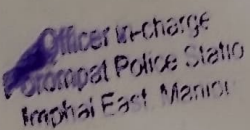 Officer in-charge
Porompat Police Statio
Imphal East, Manipur